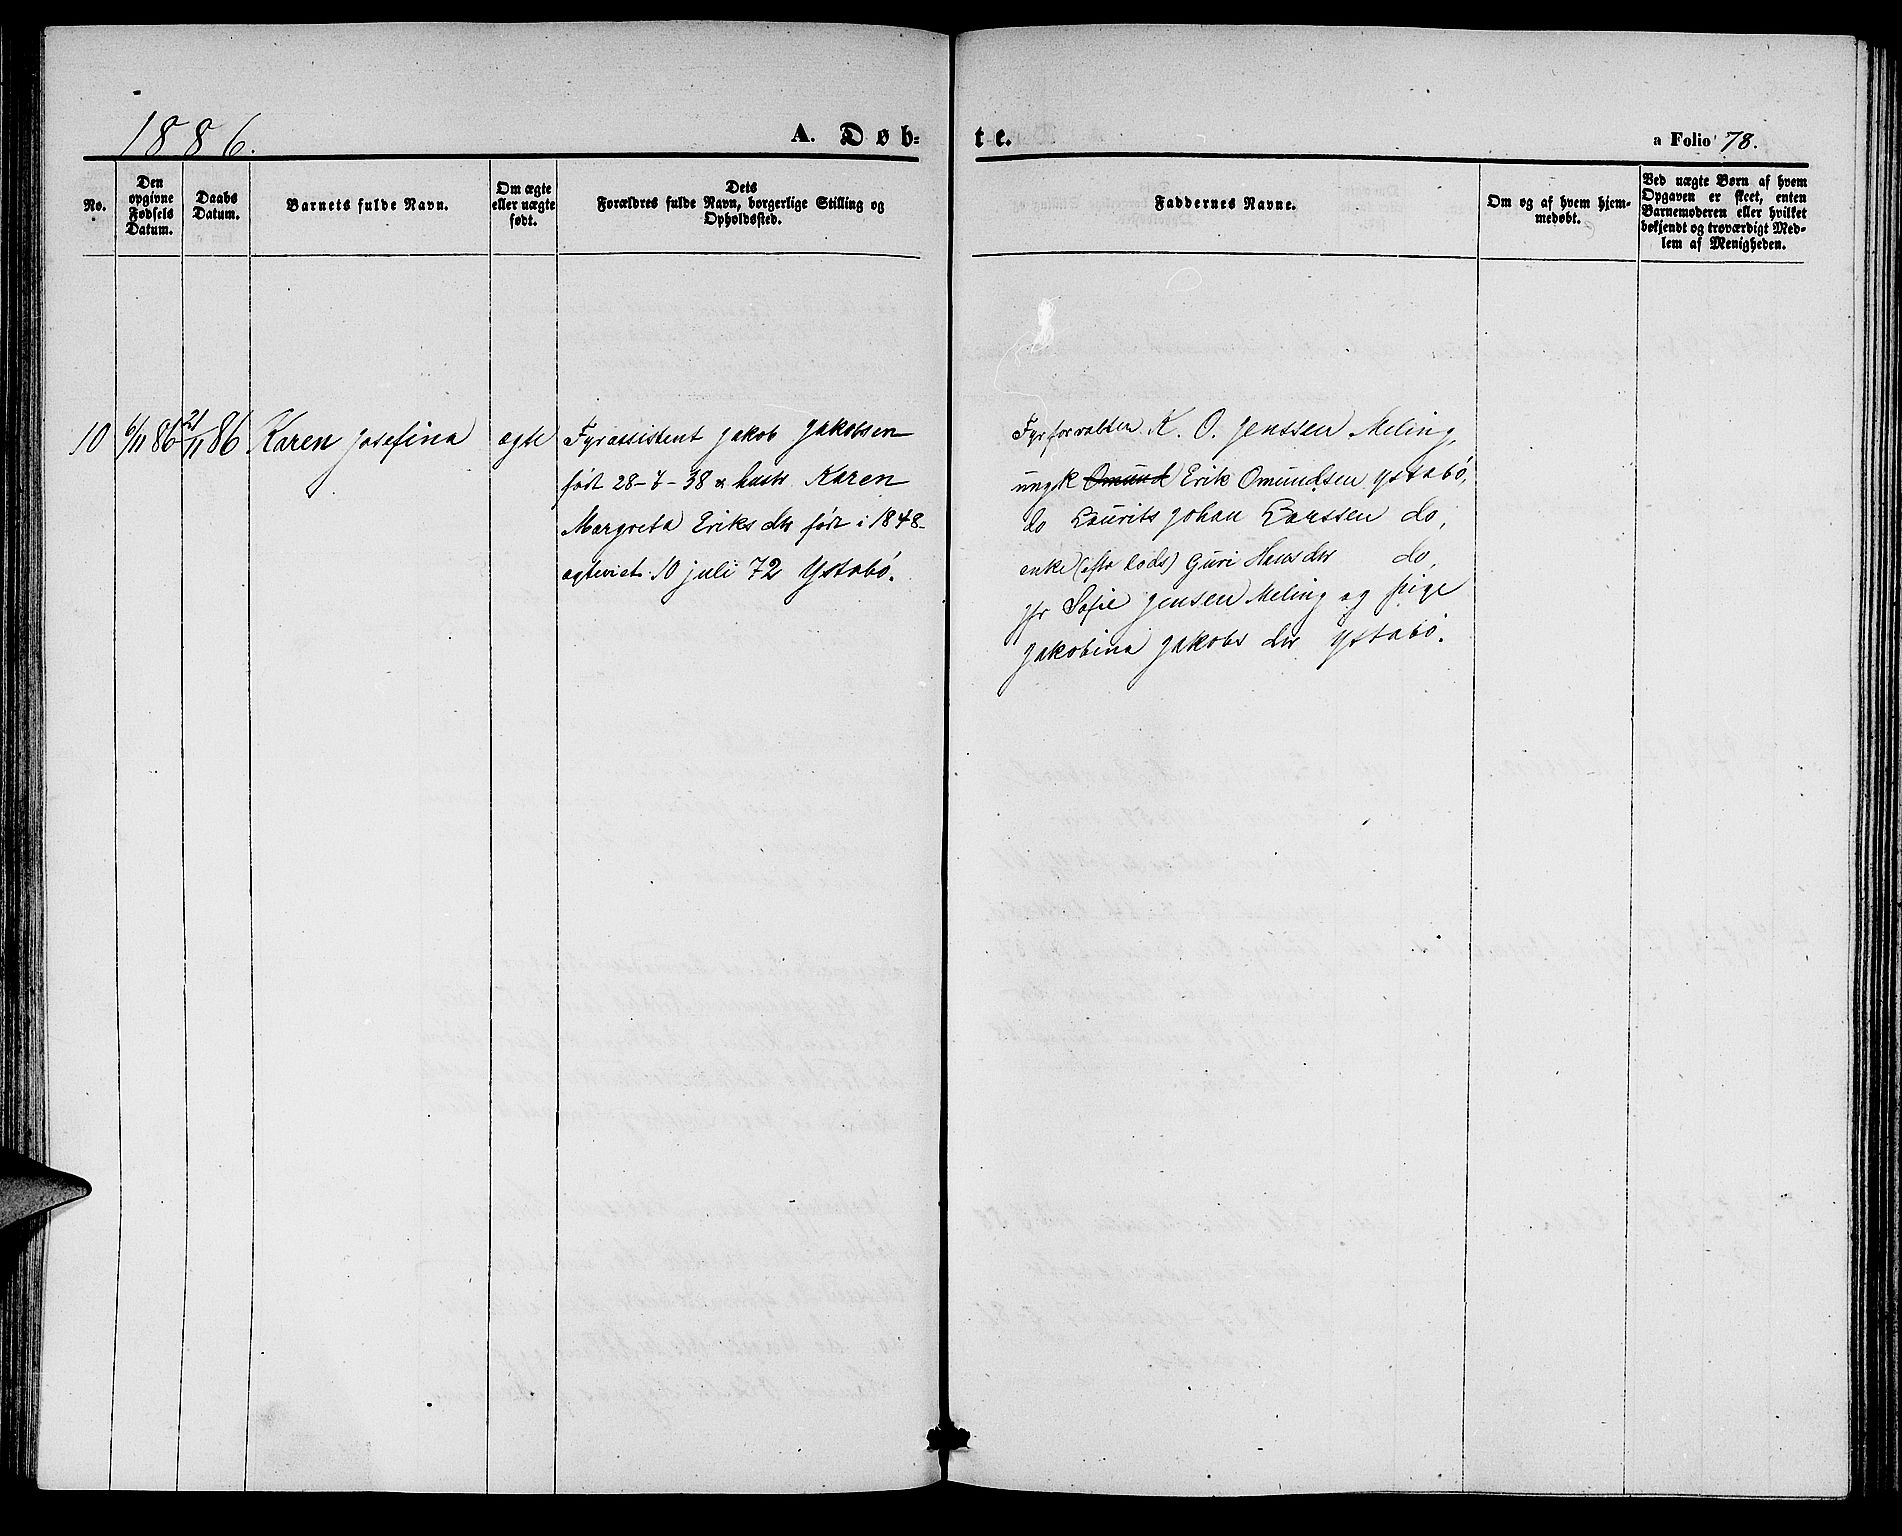 1886.
A. Døb-
te.
a Folio 78.
No.
Den
opgivne
Fødsels
Datum.
Daabs
Datum.
Barnets fulde Navn.
Om ægte
eller uægte
født.
Dets
Forældres fulde Navn, borgerlige Stilling og
Opholdssted.
Faddernes Navne.
Om og af hvem hjem-
medøbt.
Ved uægte Børn af hvem
Opgaven er skeet, enten
Barnemoderen eller hvilket
bekjendt og troværdigt Med-
lem af Menigheden.
10 6/11 86 21/11 86 Karen Josefina ægte
Fyrassistent Jakob Jakobsen
født 28-7-38 & hustr. Karen
Margreta Eriks dtr født i 1848-
ægteviet 10 juli 72 Ystabø.
Fyrforvalter K. O. Jenssen Meling,
ungk Omund Erik Omundsen Ystabø,
do Laurits Johan Larssen do,
enke (efter Lods) Guri Hans dtr do,
jfr Sofie Jensen Meling og pige
Jakobina Jakobs dtr Ystabø.